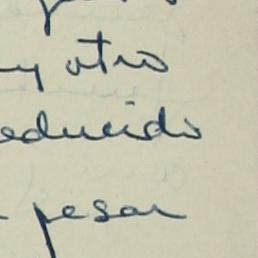 y otro
educido
pesar